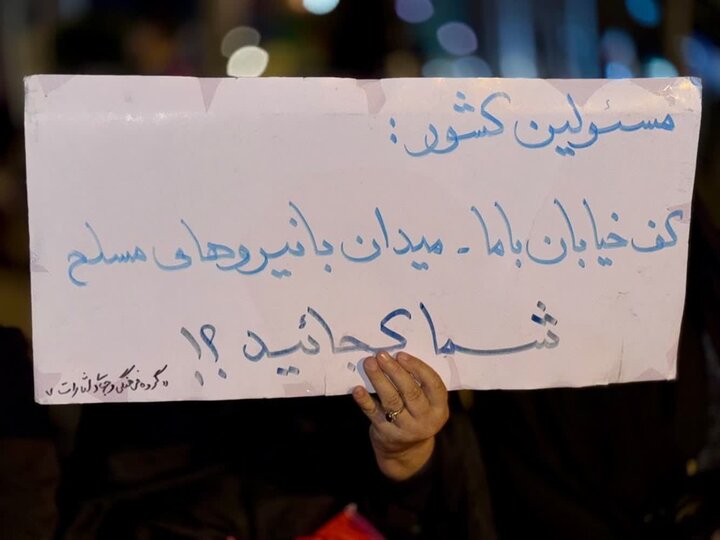 مسئولین کشور :
کف خیابان با ما - میدان با نیروهای مسلح
شما کجائید ؟!
"گروه فرهنگی و جهادی لثارات"